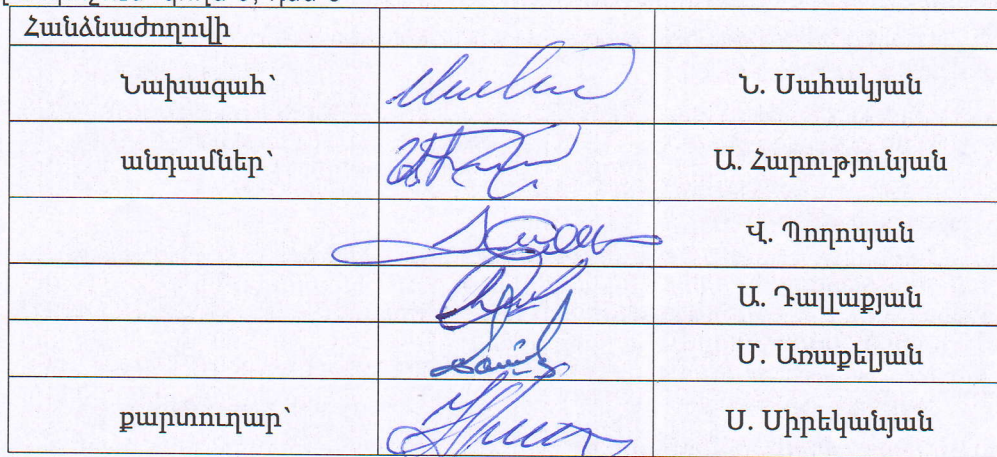 Հանձնաժողովի
Նախագահ՝ Ն. Սահակյան
անդամներ՝ Ա. Հարությունյան
Վ. Պողոսյան
Ա. Դալլաքյան
Մ. Առաքելյան
քարտուղար՝ Ս. Սիրեկանյան